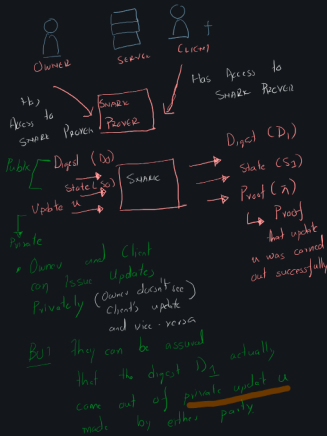 OWNER
SERVER
CLIENT
Has Access to
SNARK PROVER
Has
Access to
SNARK PROVER
SNARK
PROVER
Public
Digest (D0)
State (S0)
Update u
Private
SNARK
Digest (D1)
State (S1)
Proof (π)
Proof
that update
u was carried
out successfully
* Owner and Client
can Issue Updates
Privately (Owner doesn't see
Client's update
and vice-versa
BUT They can be assured
that the digest D1 actually
came out of private updat u
made by either party